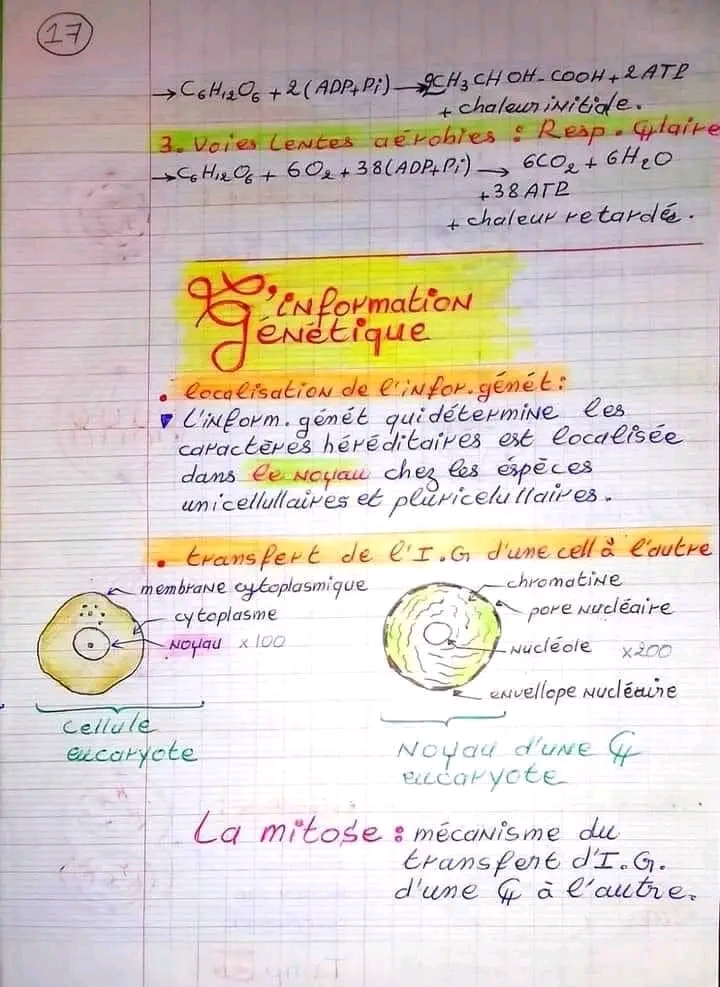 17
→ C₆H₁₂O₆ + 2(ADP+Pi) → 2CH₃CHOH-COOH + 2ATP
+ chaleur initiale.
3. Voies lentes aérobies : Resp. Cellulaire
→ C₆H₁₂O₆ + 6O₂ + 38(ADP+Pi) → 6CO₂ + 6H₂O
+38 ATP
+ chaleur retardée.
L'information
Génétique
• localisation de l'infor.génét:
L'inform. génét qui détermine les
caractères héréditaires est localisée
dans le noyau chez les éspèces
unicellullaires et pluricelullaires.
• transfert de l'I.G d'une cell à l'autre
membrane cytoplasmique
cytoplasme
Noyau x100
cellule
eucaryote
chromatine
pore nucléaire
nucléole x200
envellope nucléaire
Noyau d'une Cell
eucaryote
La mitose : mécanisme du
transfert d'I.G.
d'une Cell à l'autre.